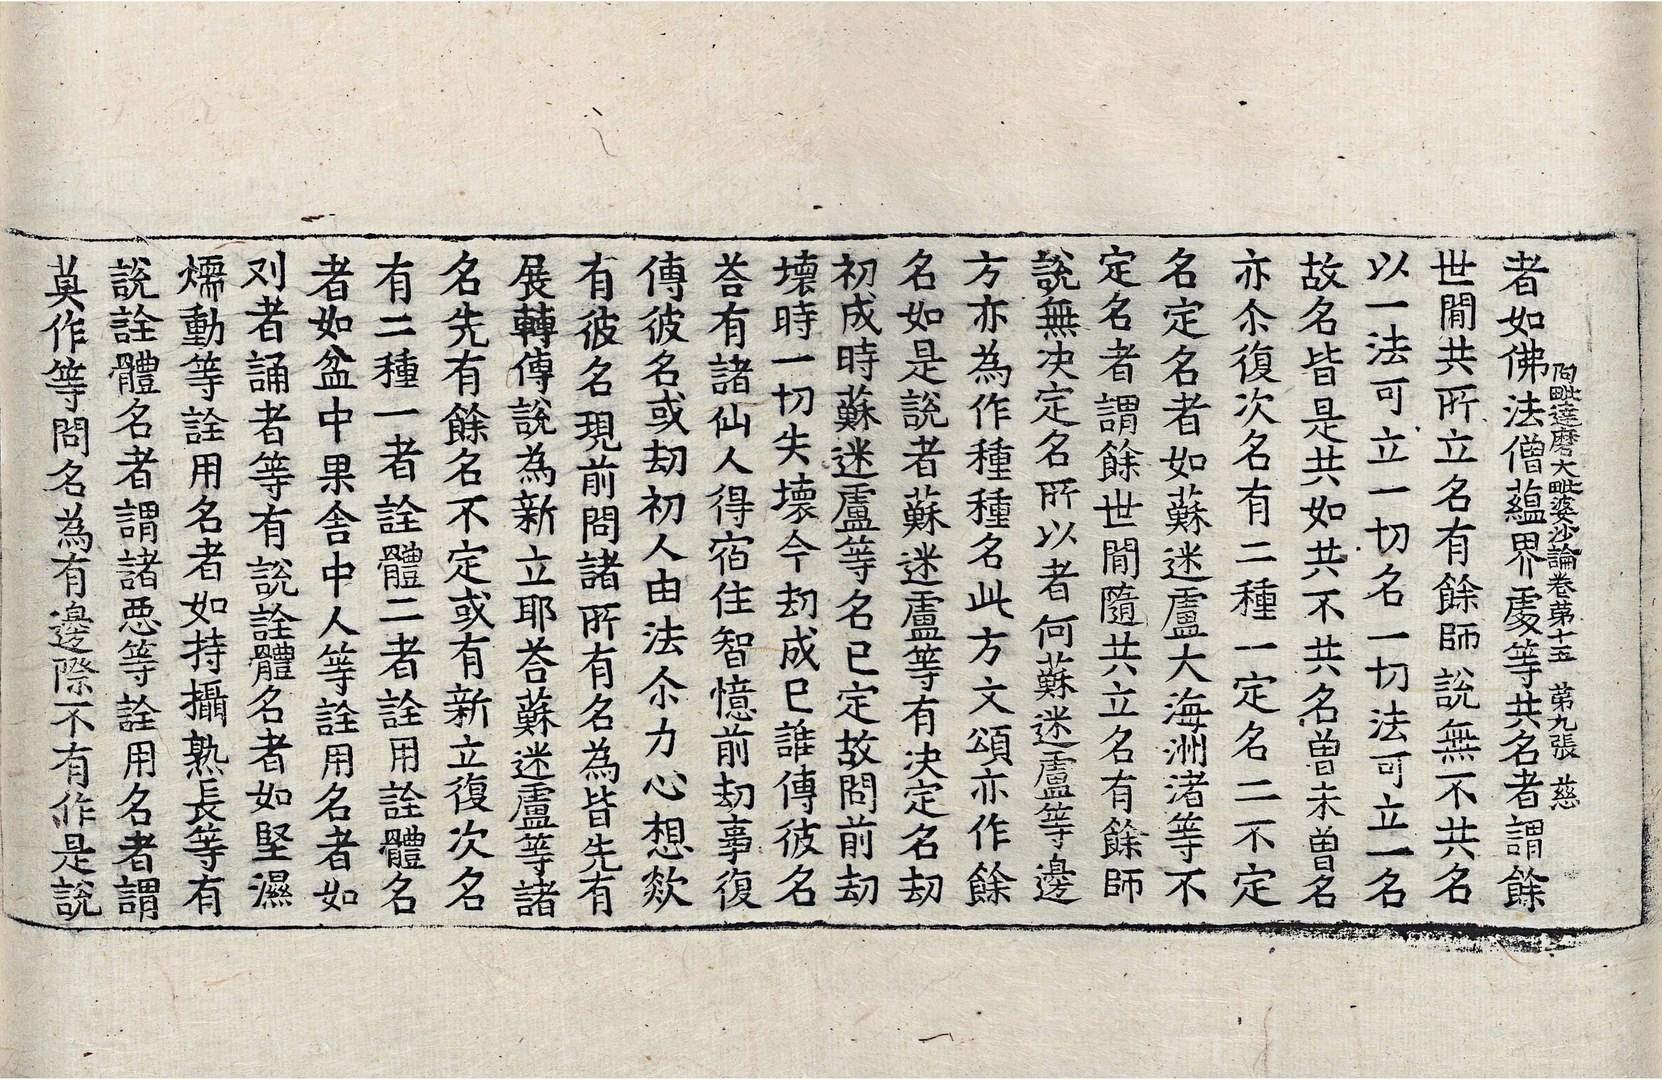 阿毗達磨大毗婆沙論卷苐十五 苐九張 慈
者如佛法僧蘊界處等共名者謂餘
世閒共所立名有餘師說無不共名
以一法可立一切名一切法可立一名
故名皆是共如共不共名曾未曾名
亦尒復次名有二種一定名二不定
名定名者如蘇迷盧大海洲渚等不
定名者謂餘世閒隨共立名有餘師
說無決定名所以者何蘇迷盧等邊
方亦為作種種名此方文頌亦作餘
名如是說者蘇迷盧等有決定名劫
初成時蘇迷盧等名已定故問前劫
壞時一切失壞今劫成已誰傳彼名
荅有諸仙人得宿住智憶前劫事復
傳彼名或劫初人由法尒力心想欻
有彼名現前問諸所有名為皆先有
展轉傳說為新立耶荅蘇迷盧等諸
名先有餘名不定或有新立復次名
有二種一者詮體二者詮用詮體名
者如盆中果舍中人等詮用名者如
刈者誦者等有說詮體名者如堅濕
煗動等詮用名者如持攝熟長等有
說詮體名者謂諸惡等詮用名者謂
莫作等問名為有邊際不有作是說